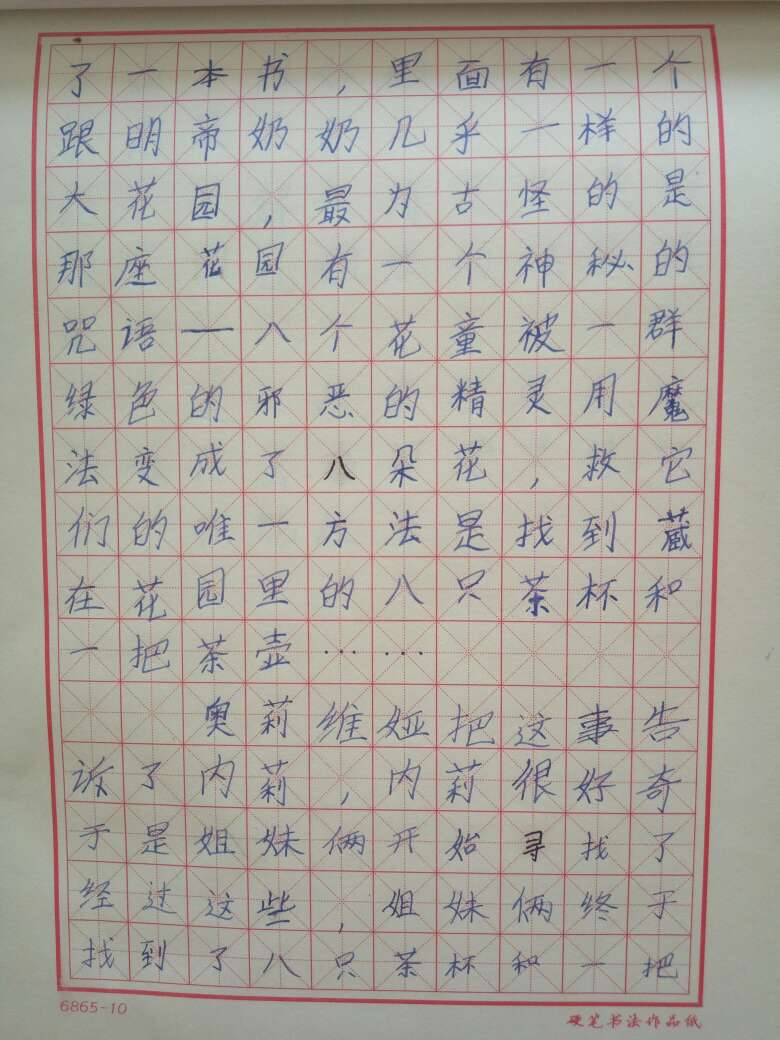 了一本书，里面有一个
跟明帝奶奶几乎一样的
大花园，最为古怪的是
那座花园有一个神秘的
咒语——八个花童被一群
绿色的邪恶的精灵用魔
法变成了八朵花，救它
们的唯一方法是找到蔵
在花园里的八只茶杯和
一把茶壶……
奥莉维娅把这事告
诉了内莉，内莉很好奇
于是姐妹俩开始寻找了
经过这些，姐妹俩终于
找到了八只茶杯和一把
6865-10
硬笔书法作品纸